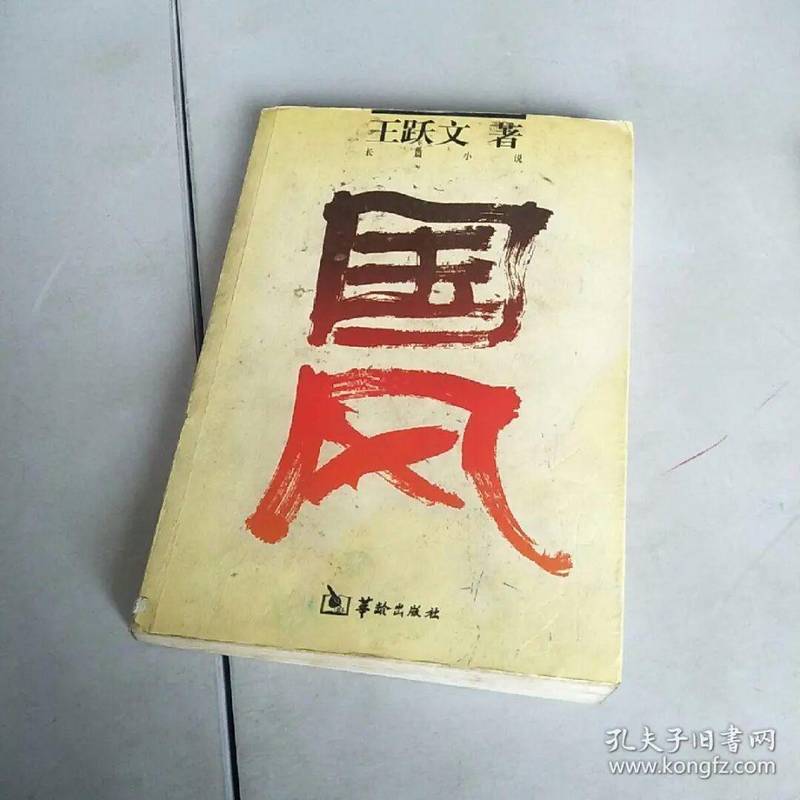 王跃文 著
长篇小说
国风
华龄出版社
孔夫子旧书网
www.kongfz.com